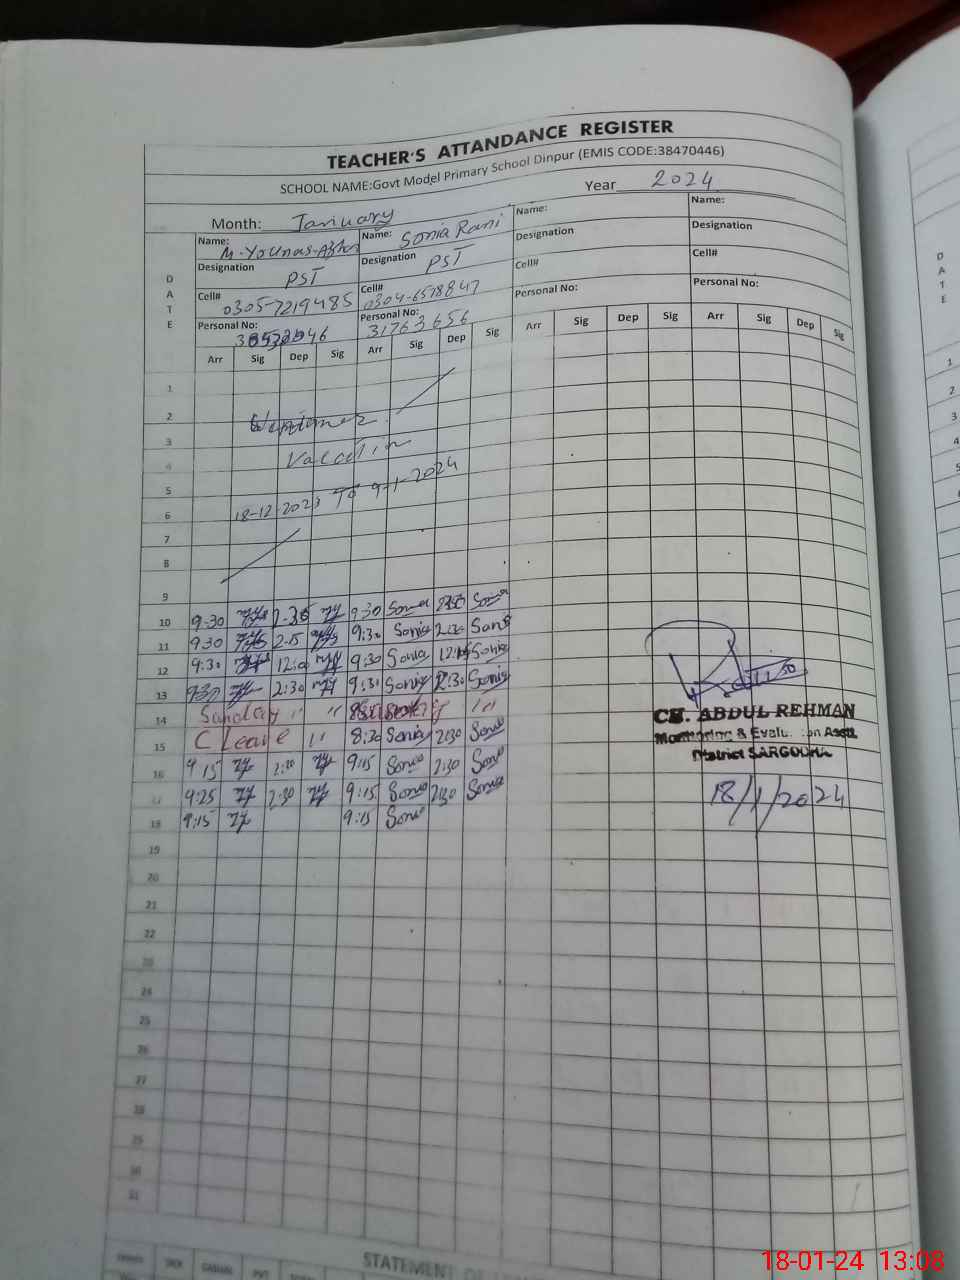 TEACHER'S ATTANDANCE REGISTER
SCHOOL NAME:Govt Model Primary School Dinpur (EMIS CODE:38470446)
Month: January Year 2024
Name: M-Younas- Name: Sonia Rani Name: Name:
Designation PST Designation PST Designation Designation
Cell# 0305-7219485 Cell# 0304-6578847 Cell# Cell#
Personal No: Personal No: 31763656 Personal No: Personal No:
DATE Arr Sig Dep Sig Arr Sig Dep Sig Arr Sig Dep Sig Arr Sig Dep Sig
1
2
3
4
5
6 18-12-2023 To 9-1-2024
7
8
9
10 9-30 9:30 Sonia
11 9:30 2:15 9:30 Sonia 2:30 Sonia
12 9:30 9:30 Sonia Sonia
13 9:30 2:30 9:30 Sonia 2:30 Sonia
14 Sunday " "
15 C Leave " 8:30 Sonia 2:30 Sonia
16 9:15 2:30 9:15 Sonia 2:30 Sonia
17 9:25 2:30 9:15 Sonia 2:30 Sonia
18 9:15 9:15 Sonia
19
20
21
22
23
24
25
26
27
28
29
30
31
CH. ABDUL REHMAN
Monitoring & Evaluation Asstt
District SARGODHA
18/1/2024
STATEMENT
18-01-24 13:08